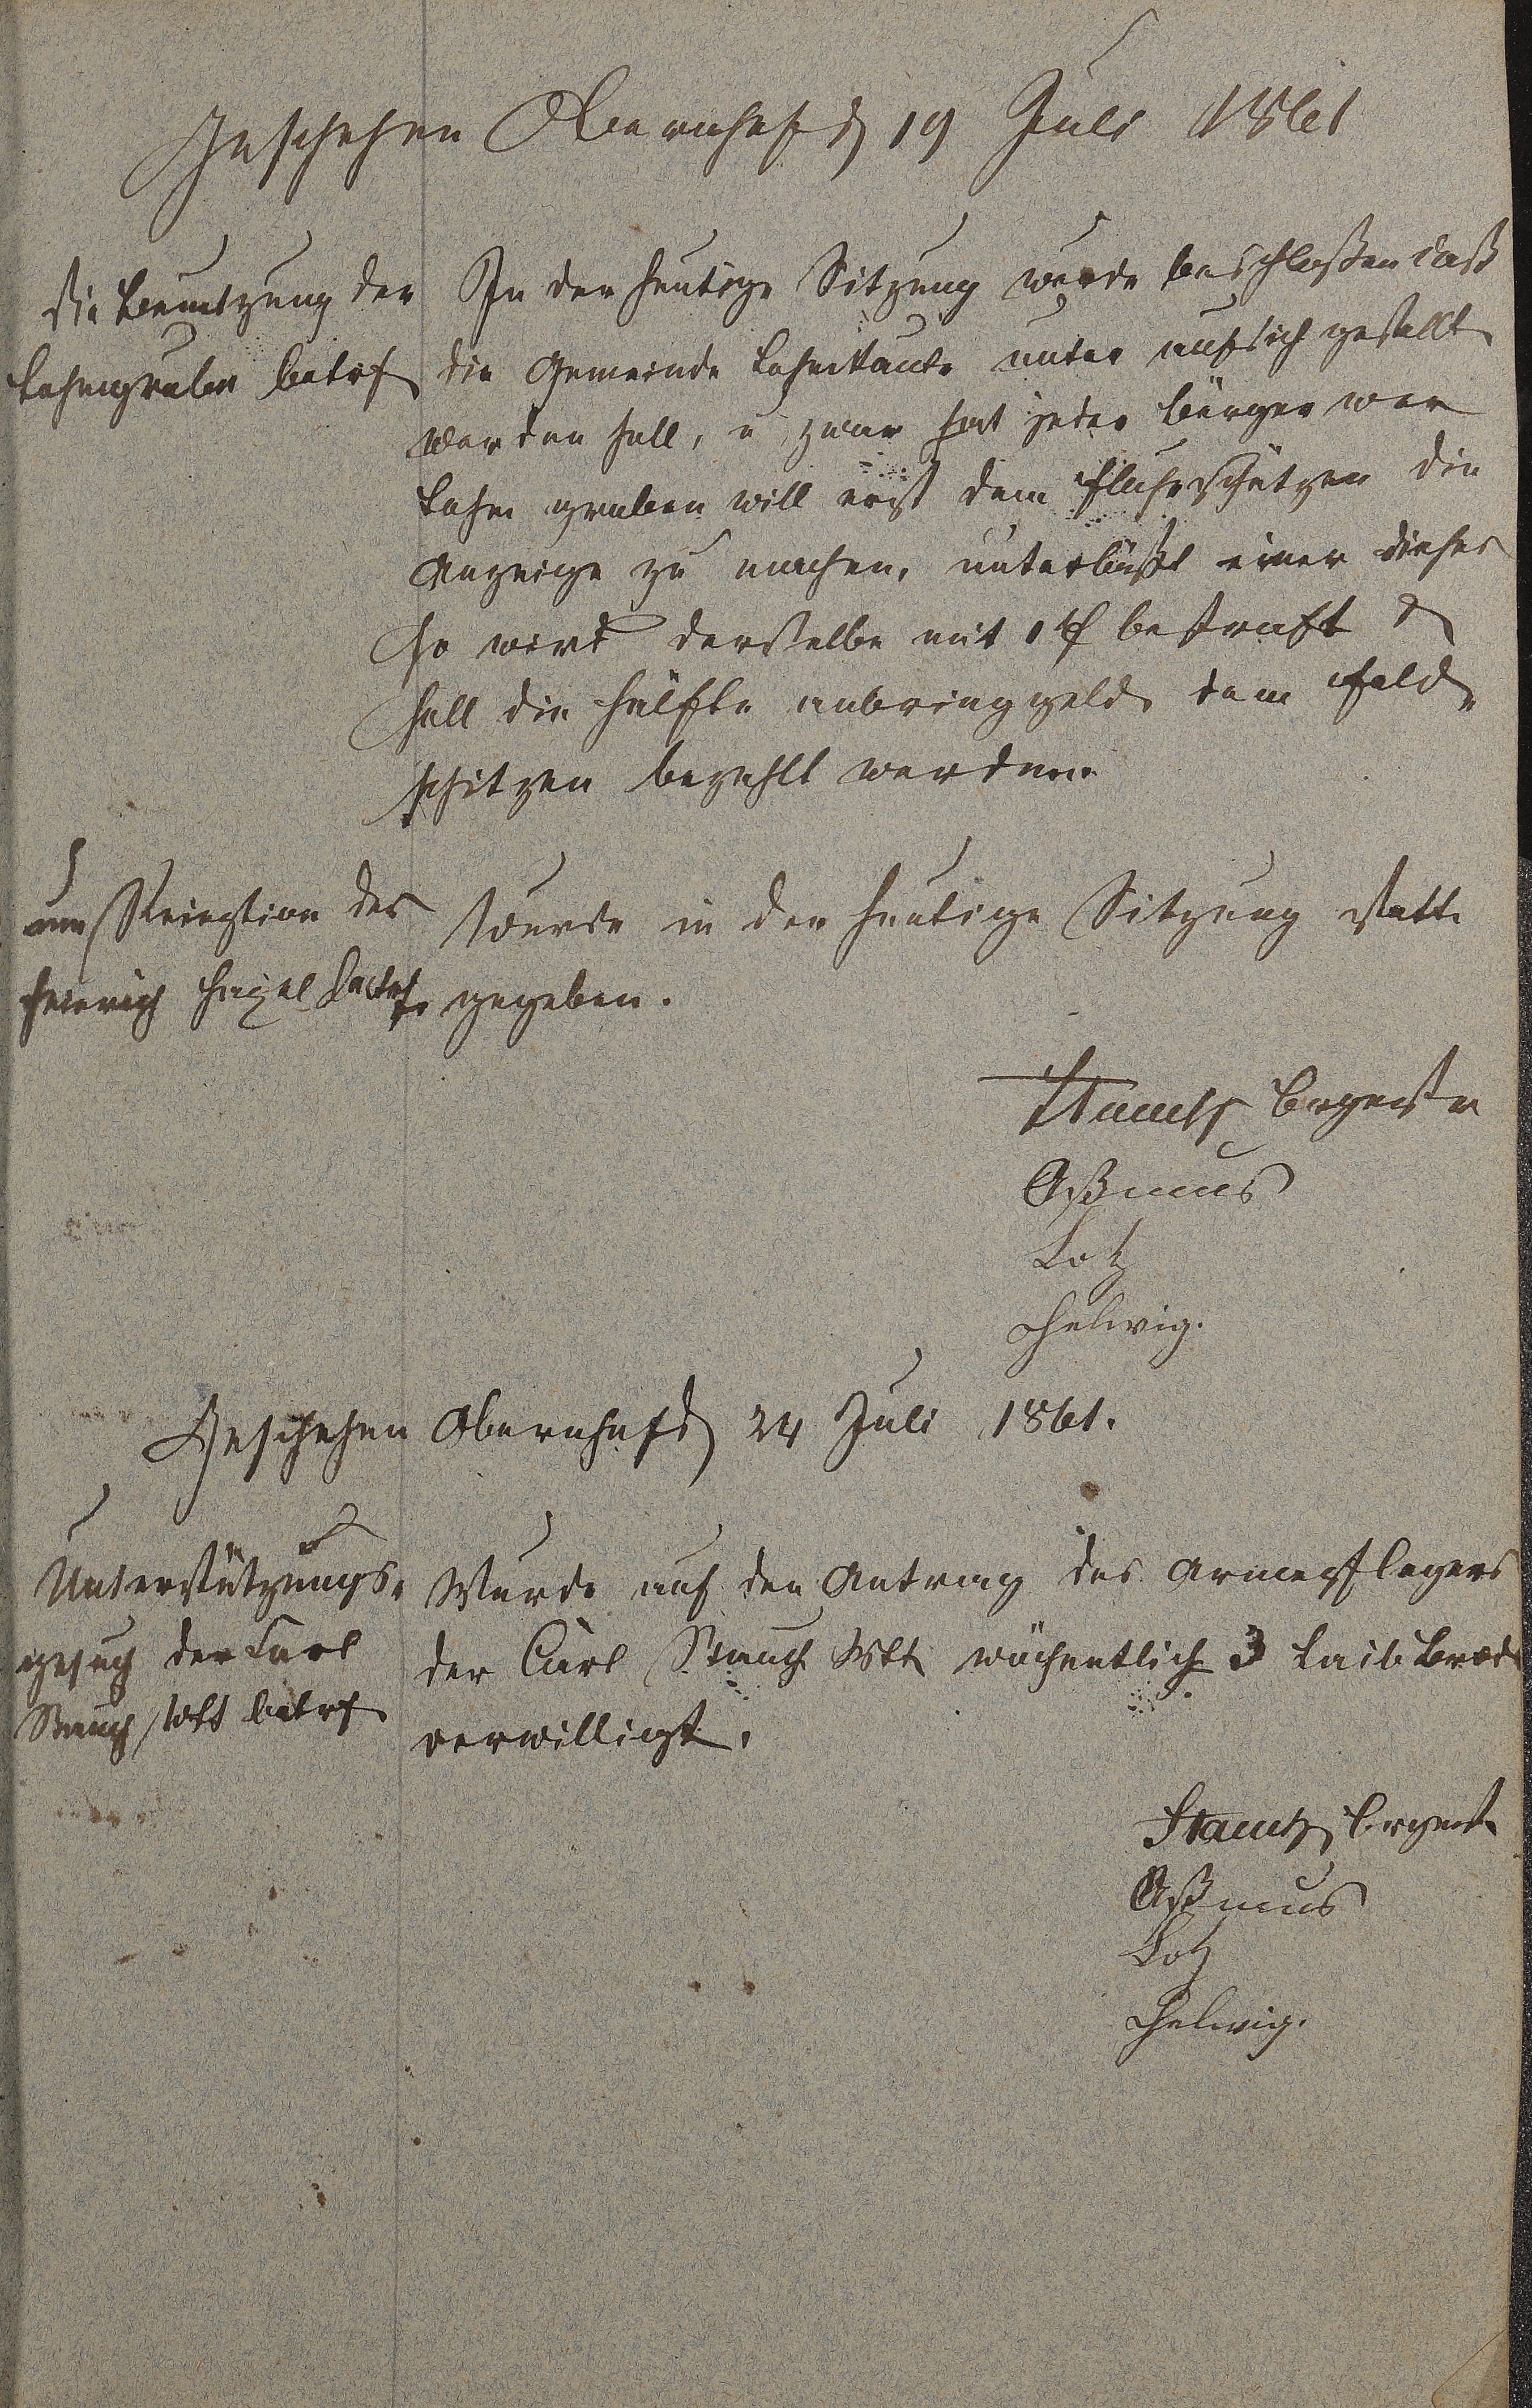 Geschehen Obernhof d 19 Juli 1861
Die Benutzung der
Lehmgrube betrf
In der heutige Sitzung wurde beschloßen daß
die Gemeinde Lehmkaute unter aufsich gestellt
werden soll, u zwar hat jeder Bürger wer
Lehm graben will erst dem Fluhrschützen die
Anzeige zu machen, unterläßt einer dieses
so wird derselbe mit 1 f bestraft &
soll die hälfte anbringgeld dem Feld
schitzen bezahlt werden.
um Reception des
Heinrich
wurde in der heutige Sitzung statt
gegeben.
Stauch Bürgerstr
Aßmus
Lotz
Helwig.
Geschehen Obernhof d 24 Juli 1861.
Unterstützungs-
gesuch der Carl
Stauch Wtt betrf
Wurde auf den Antrag des Armepflegers
der Carl Stauch Wtt wöchentlich 3 Laib Brod
verwilligt.
Stauch
Aßmus
Lotz
Helwig.